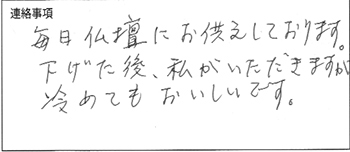 連絡事項
毎日仏壇にお供えしております。
下げた後、私がいただきますが
冷めてもおいしいです。